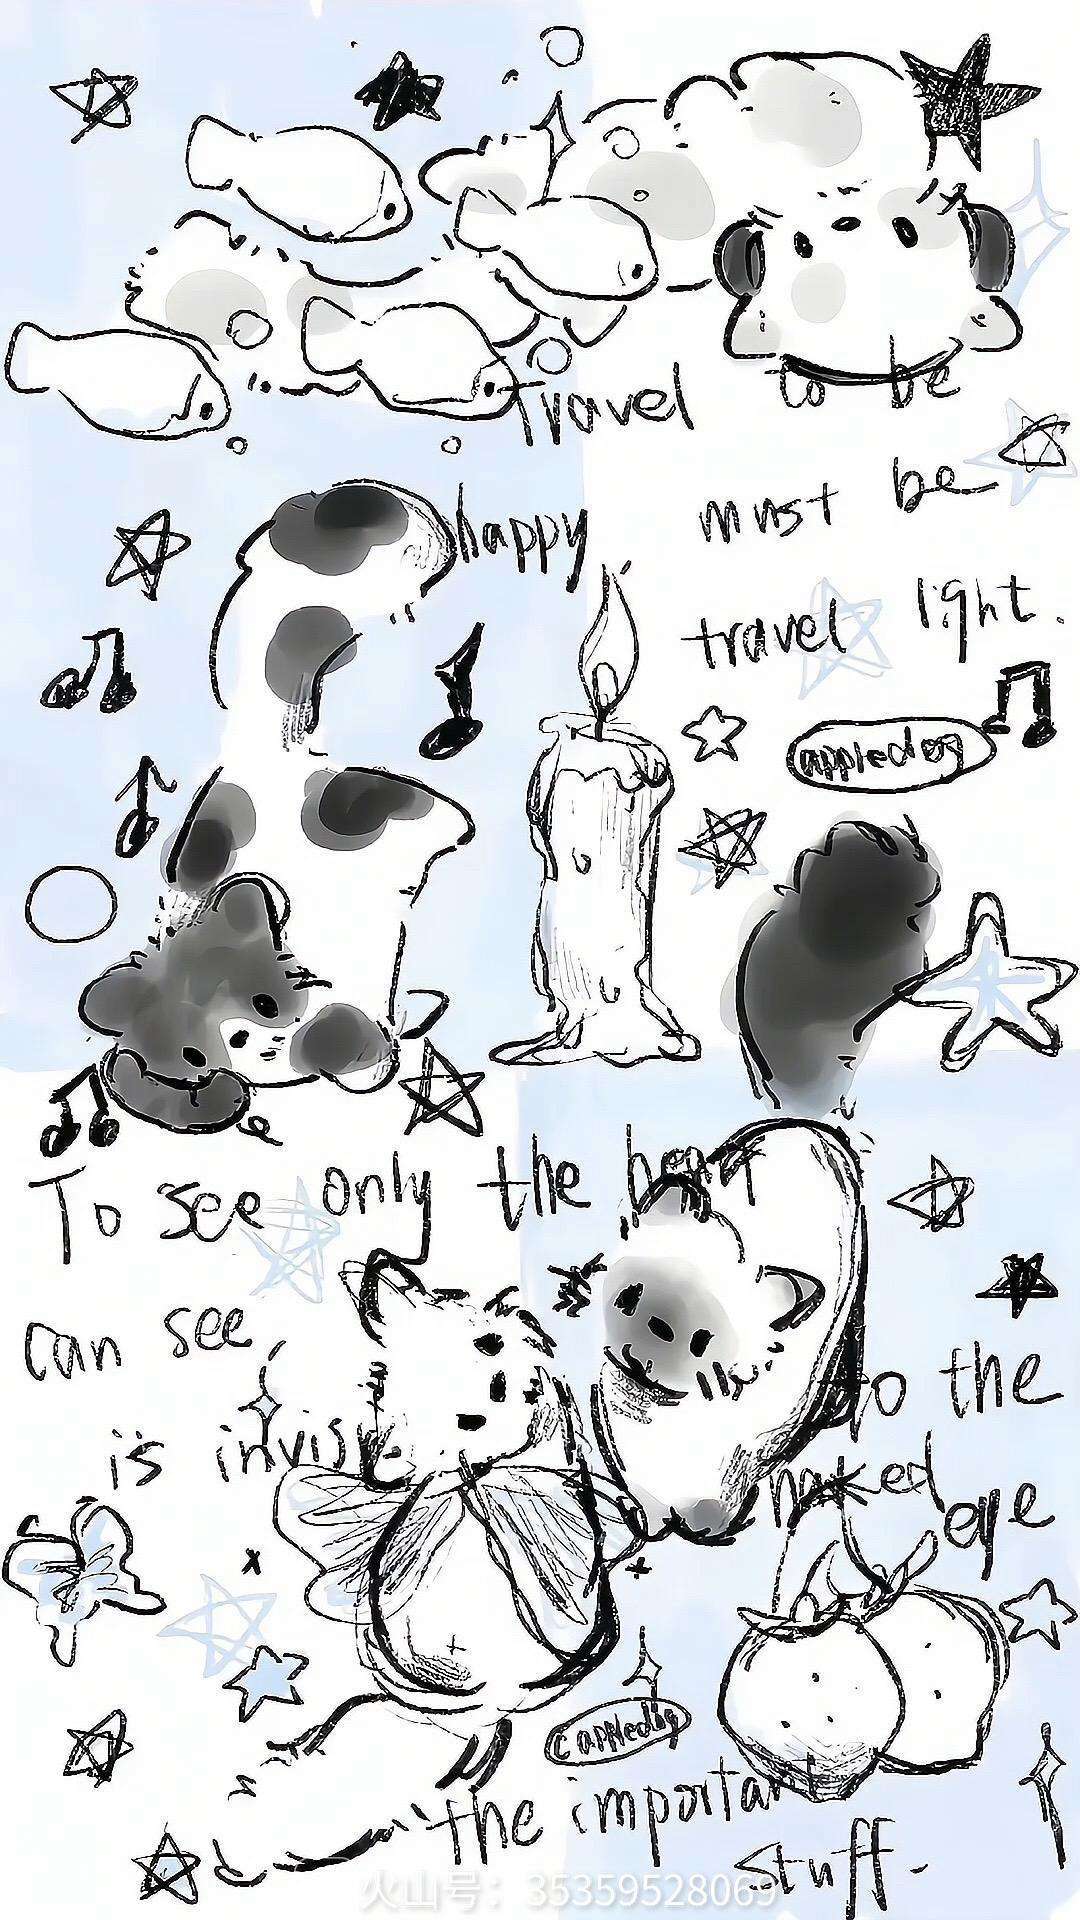 Travel to be
happy must be
travel light.
appledog
To see only the heart
can see
is invisi to the
naked eye
appledog
the important
stuff.
火山号：35359528069